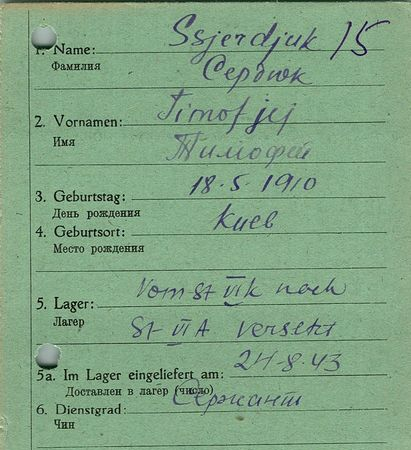 1. Name: Ssjerdjuk 15
Фамилия Сердюк
2. Vornamen: Timofjej
Имя Тимофей
3. Geburtstag: 18.5.1910
День рождения
4. Geburtsort: Киев
Место рождения
5. Lager: Vom St VI K nach
Лагер St VI A versetzt
5a. Im Lager eingeliefert am: 24.8.43
Доставлен в лагер (число)
6. Dienstgrad: Сержант
Чин